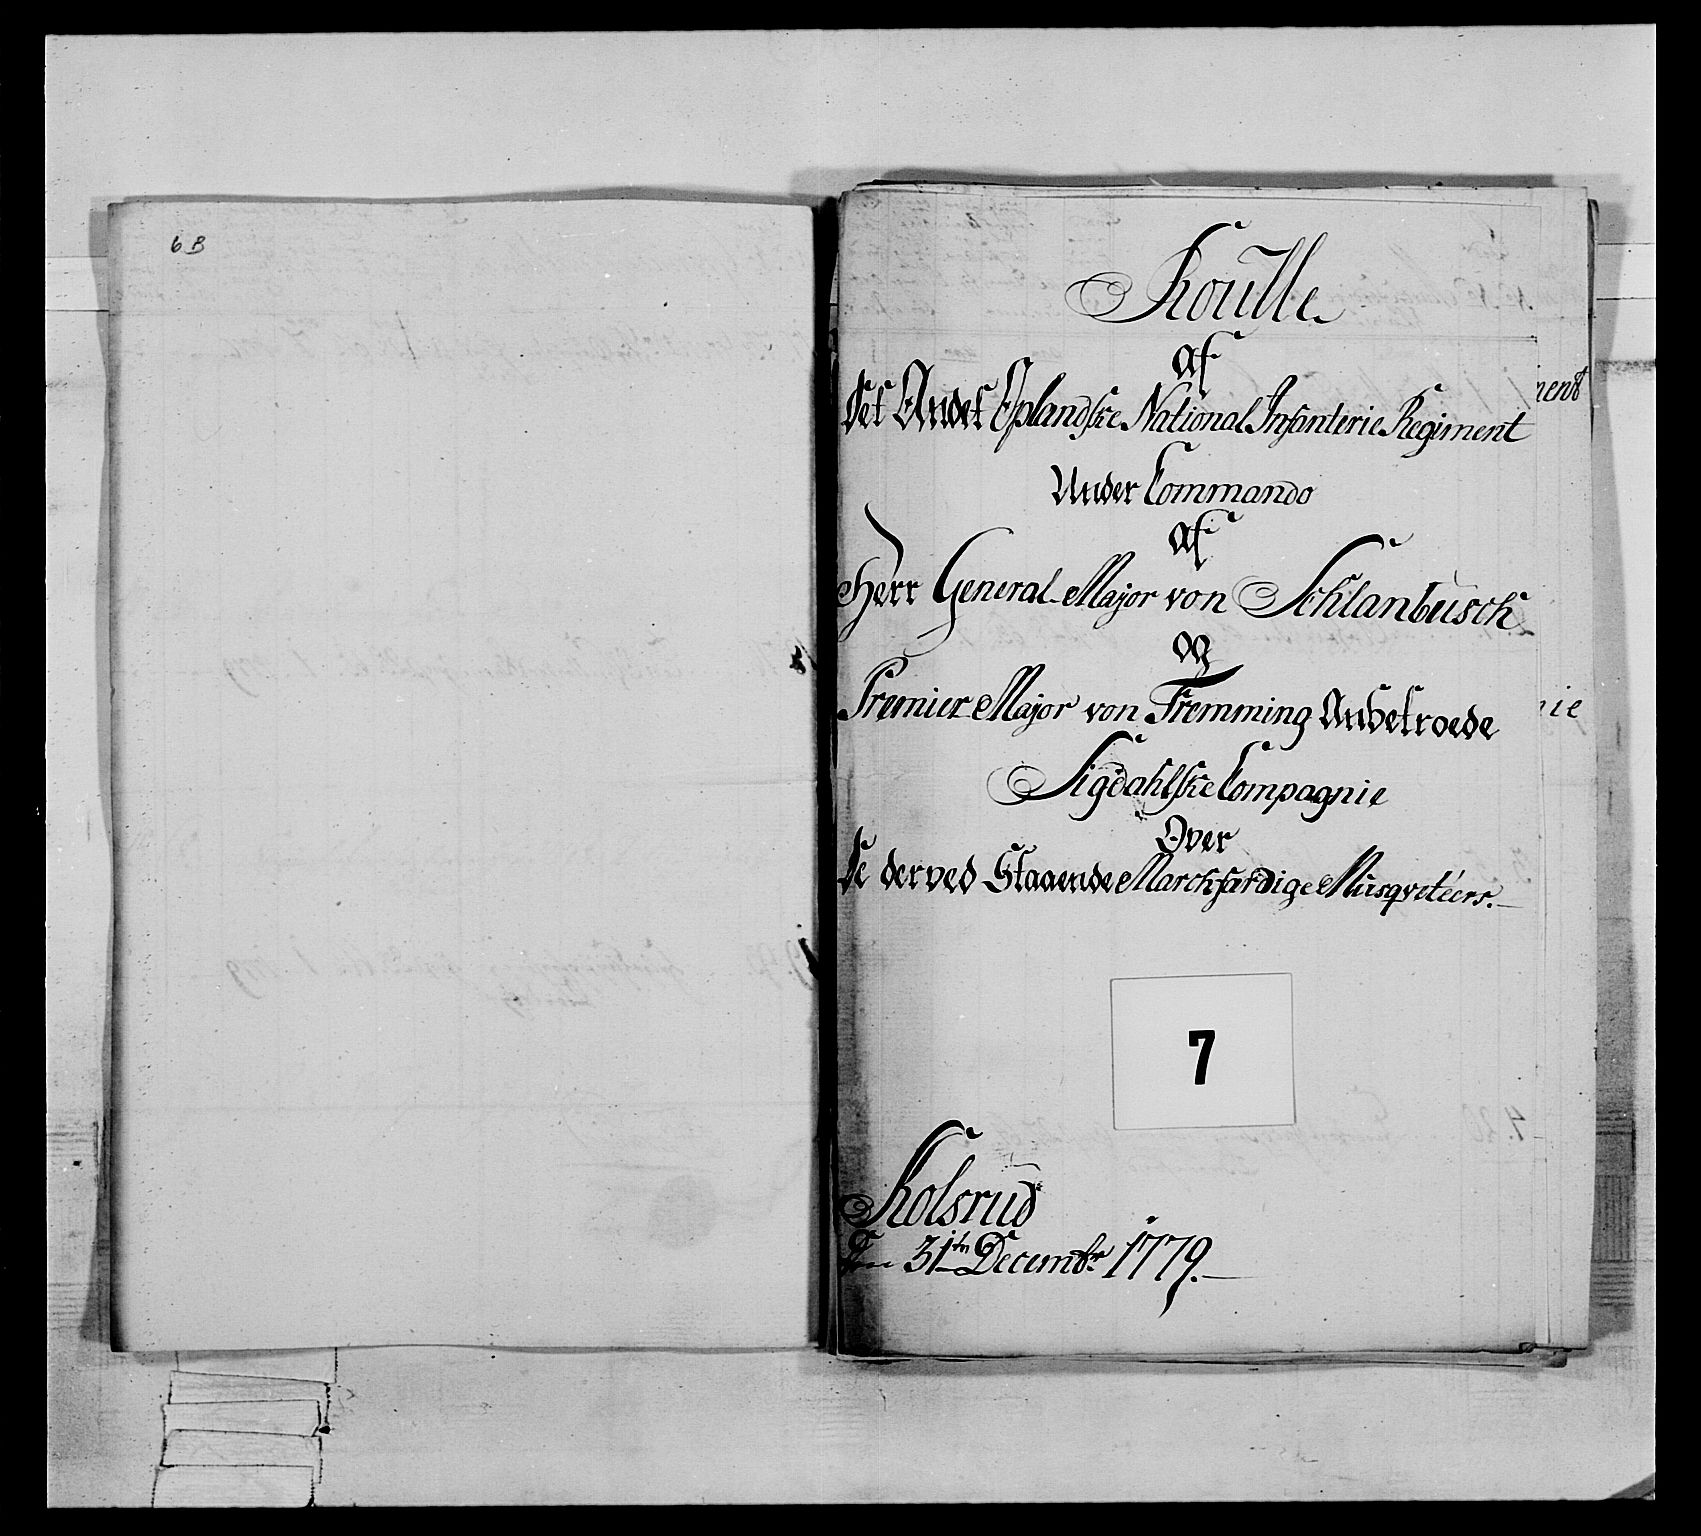 6 B
Roulle
af
det Andet Oplandske National Infanterie Regiment
Under Commando
af
Herr General-Major von Schlanbusch
og
Premier Major von Fremming Anbetroede
Sigdahlske Compagnie
Over
de derved Staaende Marchfærdige Musqvetéers.
7
Kolsrud
den 31te Decembr 1779.